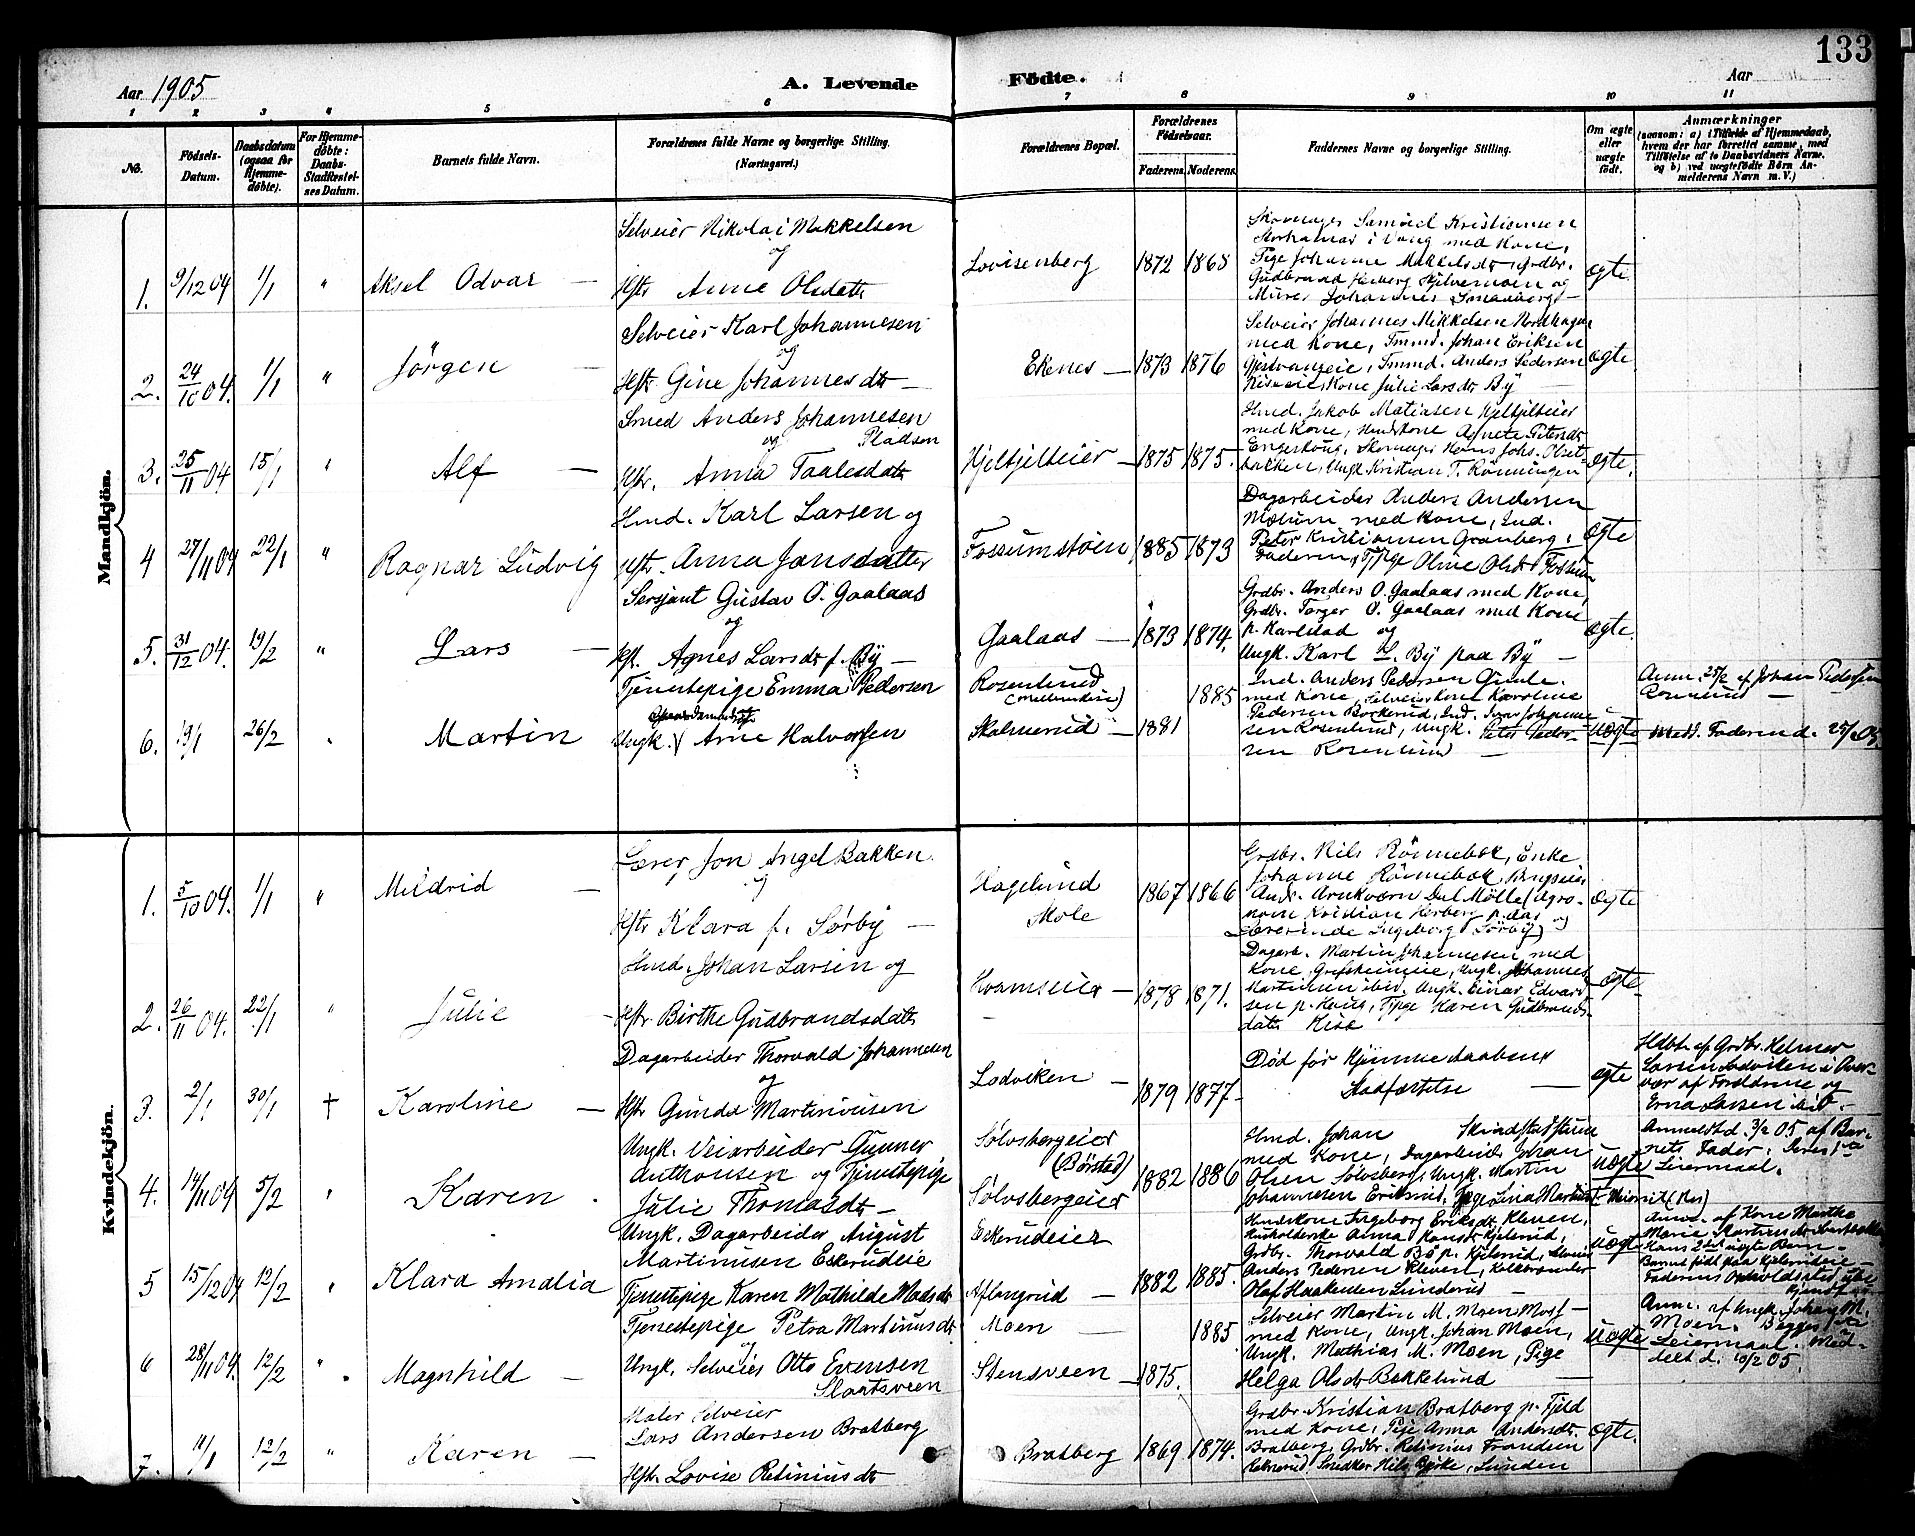 133
Aar 1905
A. Levende Fødte.
Aar
1 2 3 4 5 6 7 8 9 10 11
No.
Fødsels-
Datum.
Daabsdatum
(ogsaa for
Hjemme-
døbte).
For Hjemme-
døbte:
Daabs-
Stadfæstel-
ses Datum.
Barnets fulde Navn.
Forældrenes fulde Navne og borgerlige Stilling.
(Næringsvei.)
Forældrenes Bopæl.
Forældrenes
Fødselsaar.
Faderens. Moderens.
Faddernes Navne og borgerlige Stilling.
Om ægte
eller
uægte
født.
Anmærkninger
(saasom: a) i Tilfælde af Hjemmedaab,
hvem der har forrettet samme, med
Tilføielse af to Daabsvidners Navne,
og b) ved uægtefødte Børn An-
melderens Navn m. V.)
Mandkjön.
1. 9/12 04 1/1 " Aksel Odvar —
Selveier Nikolai Mikkelsen
og
Hstr Anne Olsdatr
Lovisenberg 1872 1868
Samuel Kristiansen
Storhamar i Vang med Kone,
Pige Johanne Mikkelsdr, Grdbr.
Gudbrand og
Murer Johannes Smedberg —
ægte.
2. 24/10 04. 1/1 " Jörgen —
Selveier Karl Johannesen
og
Hstr. Gine Johannesdtr —
Ekenes — 1873 1876
Selveier Johannes Mikkelsen Nordhagen
med Kone, Tmmd. Johan Eriksen
Tmmd. Anders Pedersen
Kone Julie Larsdr By —
ægte
3. 25/11 04 15/1 " Alf —
Smed Anders Johannesen
og Pladsen
Hstr. Anna Taalesdatr
Hjeltjelteier — 1875 1875.
Hmd. Jakob Matiasen Hjeltjelteier
med Kone, Huskone Agnete Petersdr
Engeskoug, Skomager Hans Johs. Olset-
bakken, Ungk. Kristian T. Rönningen
ægte.
4 27/11 04 22/1 " Ragnar Ludvig
Hmd. Karl Larsen og
Hstr. Anna Jansdatter
Fossumstöen 1885 1873
Dagarbeider Anders Andersen
Mælum med Kone, Ind.
Peter Kristiansen Granberg,
Faderen, Tj Pge Oline Olsdr Fossum
ægte
5. 31/12 04. 19/2 " Lars —
Sersjant Gustav O. Gaalaas
og
Hst. Agnes Larsdr f. By —
Gaalaas — 1873 1874.
Grdbr. Anders O. Gaalaas med Kone,
Grdbr. Torger O. Gaalaas med Kone
p. Karlstad og
Ungk. Karl L. By paa By —
ægte.
6. 19/1 26/2 . Martin
Tjenestepige Emma Pedersen
Ungk. Arne Halvorsen
Rosenlund
Skolmerud — 1881 1885
Ind. Anders Pedersen Gimle.
med Kone, Selveier Kone Karoline
Pedersen Bækerud, Ind. Ivar Johanne-
sen Rosenlund, Ungk. Peter Peder-
sen Rosenlund —
uægte
Anm. 25/2 af Johan Pedersen
Rosenlund —
Medd. Faderen d. 25/2 05.
Kvindekjön.
1. 5/10 04. 1/1 " Mildrid —
Lærer Jon Angel Bakken.
og
Hstr Klara f. Sørby —
Hagelund
Skole 1867 1866
Grdbr. Nils Rönnebek, Enke
Johanne Rönnebek
Andr. Arnkværn Dal Mölle, Agro-
nom Kristian Herberg p. das og
Lærerinde Ingeborg Sørby
ægte
2. 26/11 04. 22/1 " Julie —
Hmd. Johan Larsen og
Hstr. Birthe Gudbrandsdatr
Hvamseier — 1878 1871.
Dagarb. Martin Johannesen med
Kone, Grefsheimeie, Ungk. Johannes
Martinsen ibid. Ungk. Einar Edvard-
sen p. Hvam, Tjpge Karen Gudbrands-
datr Kise
ægte
3. 2/1 30/1 + Karoline —
Dagarbeider Thorvald Johannesen
og
Hstr Gunda Martiniusen
Lodviken — 1879 1877.
Död för Hjemmedaabens
Stadfæstelse —
ægte
Hdbt. af Grdbr. Helmer
Larsen Lodviken i Over-
vær af Forældrene og
Erna Larsen ibid.
4. 14/11 04 5/2 " Karen .
Ungk. Veiarbeider Gunner
Anthonsen og Tjenestepige
Julie Thomasdr —
Sølvsbergeier
(Børsted)
Sølvsbergeier 1882 1886
Hmd. Johan Skindstadstuen
med Kone, Dagarbeider Johan
Olsen Sølvsberg, Ungk. Martin
Johannesen Eriksrud, Pge Lina
uægte
Anmeldt d. 3/2 05 af Bar-
nets Fader. Deres 1ste
Leiermaal.
5 15/12 04 12/2 " Klara Amalia
Ungk. Dagarbeider August
Martinusen Eskerudeie
Tjenestepige Karen Mathilde Madsdr
Eskerudeier
Aflangrud — 1882 1885.
Huskone Ingeborg Eriksdr Kleven,
Husholderske Anna Hansdr Kjelsrud,
Grdbr. Thorvald Bö p. Kjelsrud,
Anders Pedersen Kleven,
Olaf Haakensen Lunderud —
uægte
Anm. af Kone Marthe
Marie Martinsdr
Hans 2det uægte Barn.
Barnet födt paa
Faderens Opholdssted
6 28/11 04. 12/2 " Magnhild —
Tjenestepige Petra Martinusdr
og
Ungk. Selveier Otto Evensen
Slaatsveen
Moen —
Stensveen — 1875. 1885.
Selveier Martin M. Moen
med Kone, Ungk. Johan Moen,
Ungk. Mathias M. Moen, Pige
Helga Olsdr Bakkelund —
uægte
Anm. af Ungk. Johan M.
Moen. Begges 1ste
Leiermaal. Med-
delt d. 10/2 05.
7. 11/1 12/2 " Karen —
Maler Selveier
Lars Andersen Bratberg
Hstr. Lovise Retiniusdr
Bratberg 1869 1874.
Grdbr. Kristian Bratberg p. Fjeld
med Kone, Pige Anna Andersdr.
Bratberg, Grdbr. Retinius Frandsen
Snedker Nils Bjerke, Lunden
ægte.